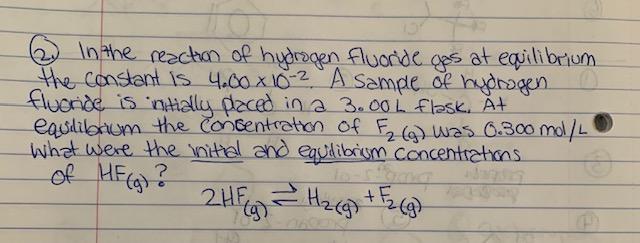 ② In the reaction of hydrogen fluoride gas at equilibrium
the constant is 4.00 x 10⁻². A sample of hydrogen
fluoride is initially placed in a 3.00 L flask. At
equilibrium the concentration of F₂ (g) was 0.300 mol/L
What were the initial and equilibrium concentrations
of HF(g)?
2HF(g) ⇌ H₂(g) + F₂(g)